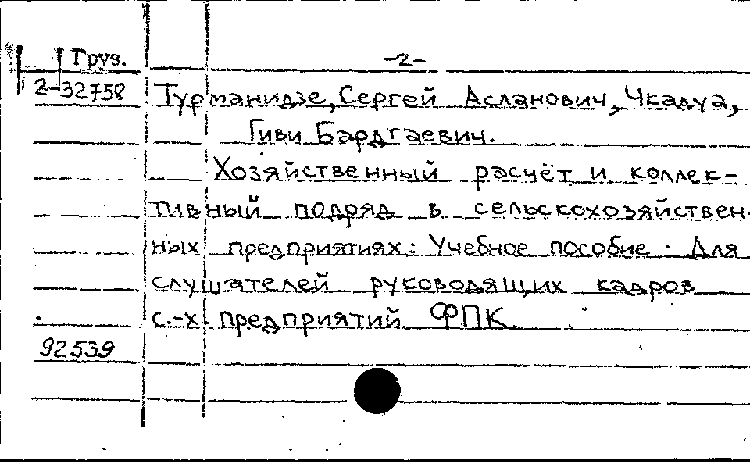 Груз. -2-
2-32758 Турманидзе, Сергей Асланович, Чкадуа,
Гиви Бардгаевич.
Хозяйственный расчёт и коллек-
тивный подряд в сельскохозяйствен-
ных предприятиях: Учебное пособие. Для
слушателей руководящих кадров
с.-х. предприятий ФПК
92539